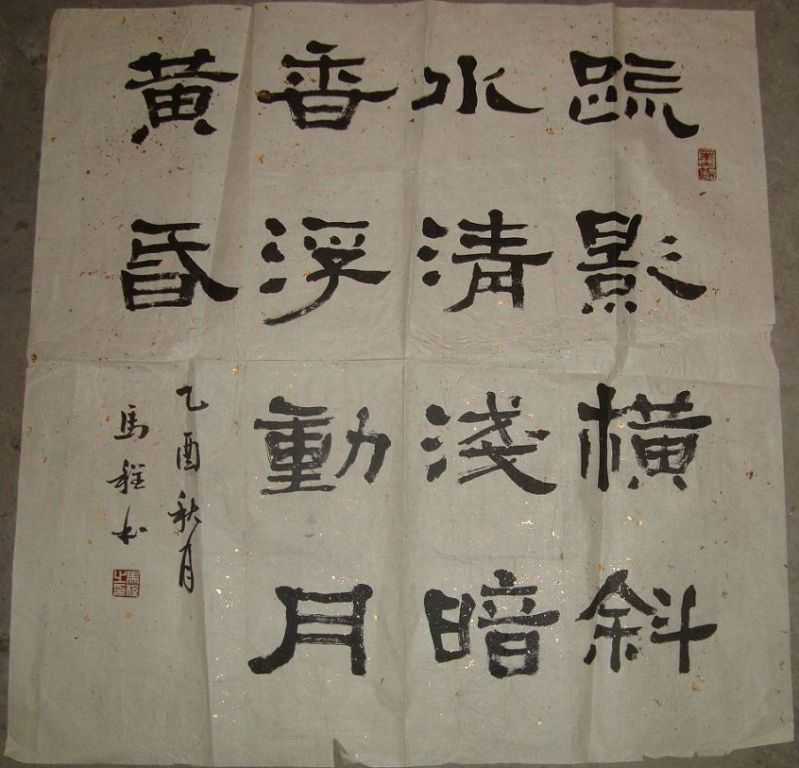 疏影橫斜
水清淺暗
香浮動月
黃昏
乙酉秋月
馬程书